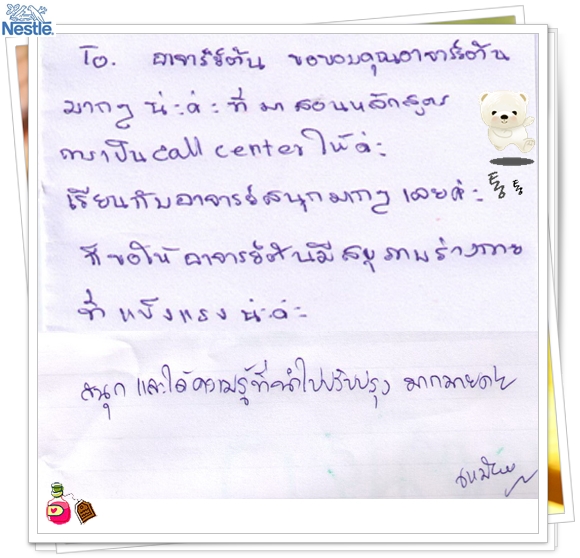 Nestlé
To. อาจารย์ต้น ขอขอบคุณอาจารย์ต้น
มากๆ น่ะค่ะ ที่ มา สอนหลักสูตร
การเป็น call center ให้ค่ะ
통 통
เรียนกับอาจารย์สนุกมากๆ เลยค่ะ
ก็ขอให้ อาจารย์ต้นมีสุขภาพร่างกาย
ที่ แข็งแรง น่ะค่ะ
สนุก และได้ความรู้ที่นำไปปรับปรุง มากมายค่ะ